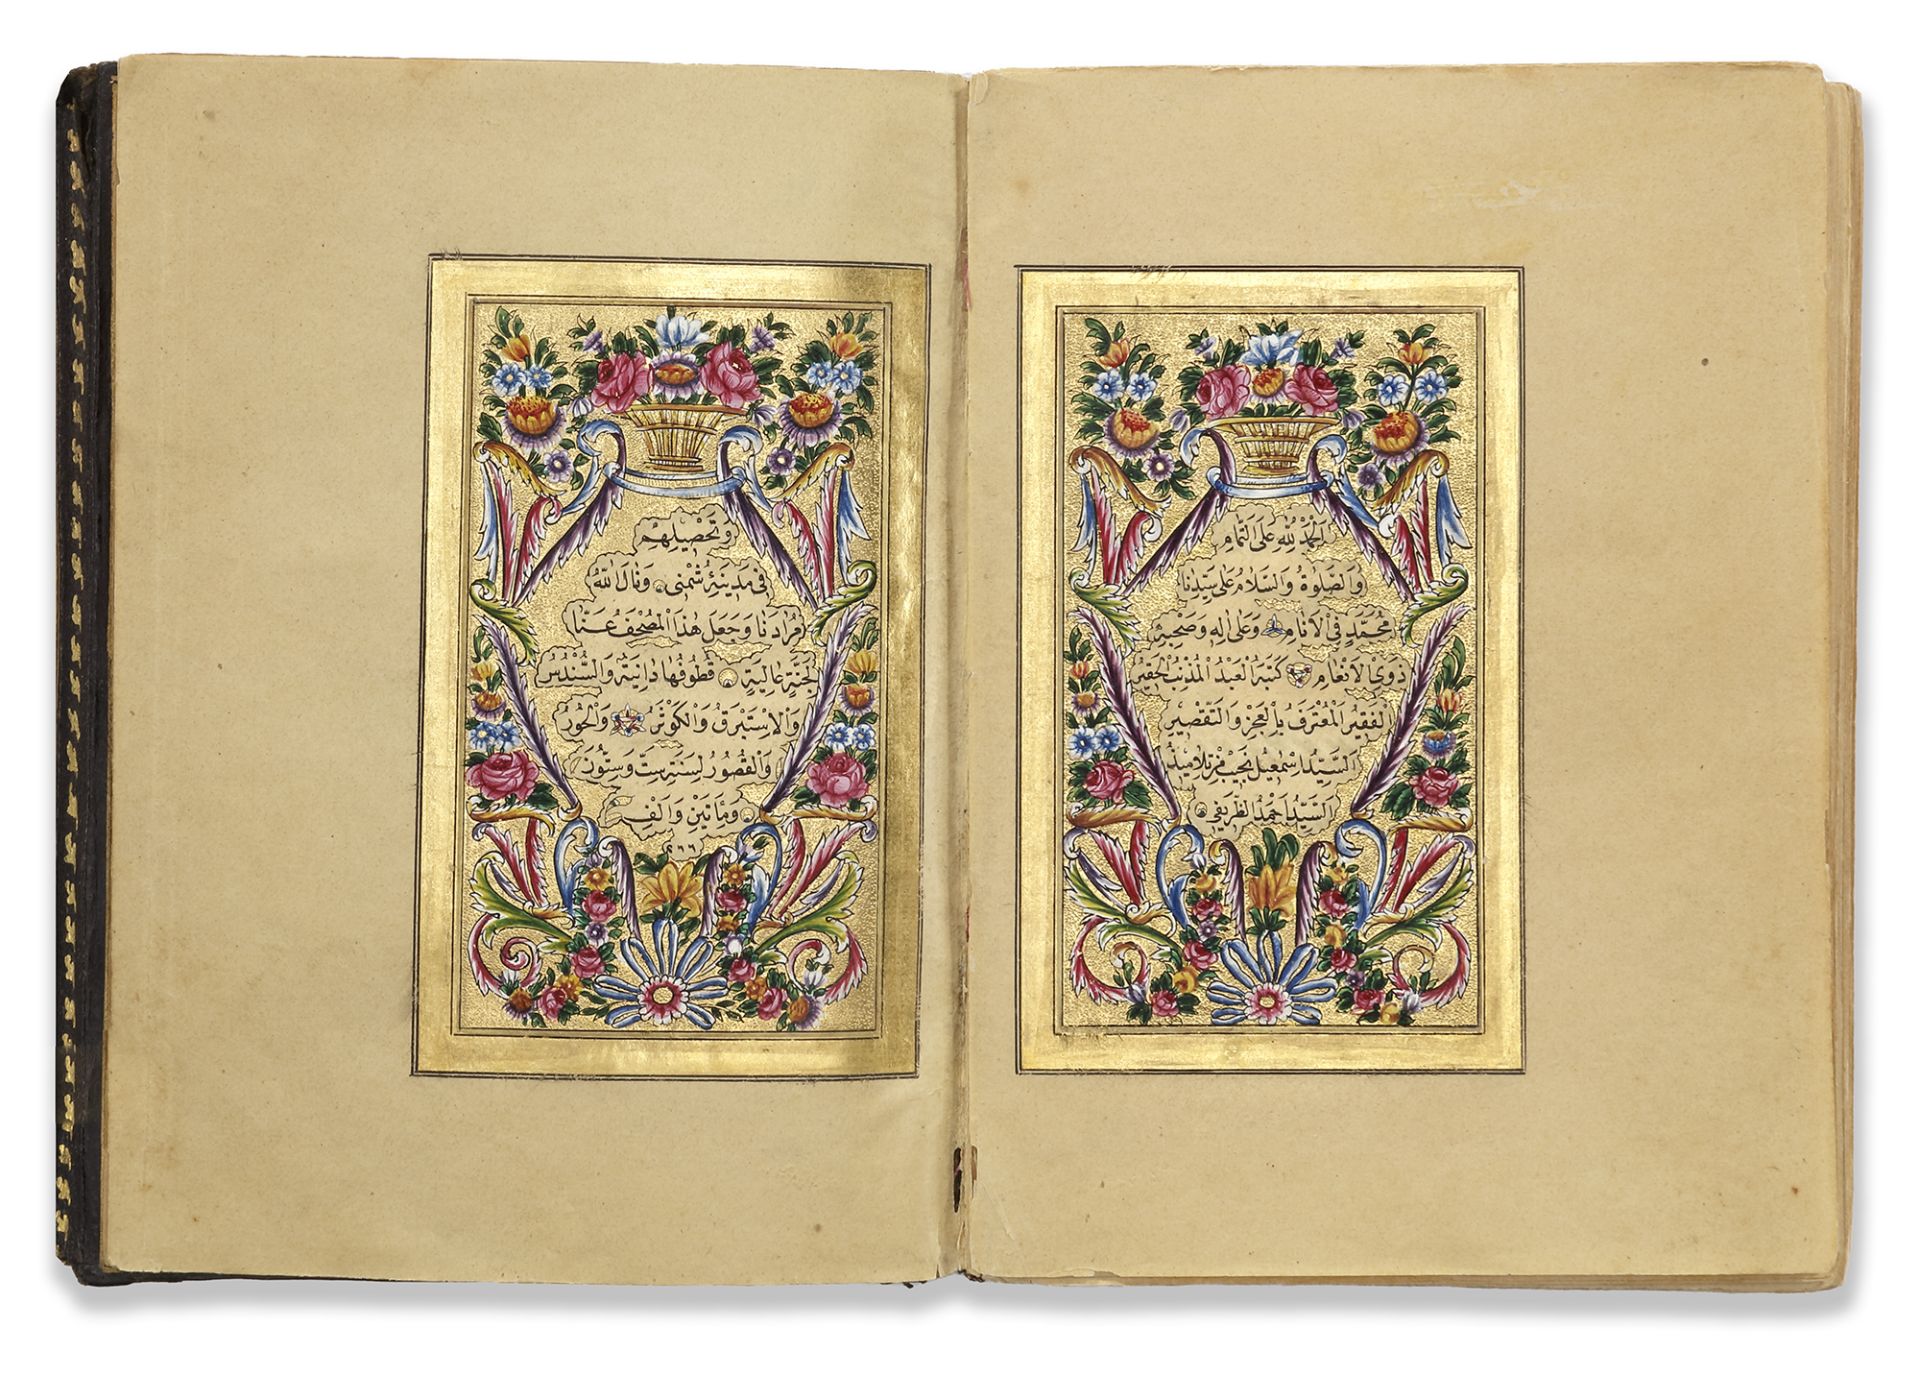 الحمد لله على التمام
والصلوة والسلام على سيدنا
محمد في الانام وعلى اله وصحبه
ذوى الانعام كتبه العبد المذنب الحقير
الفقير المعترف بالعجز والتقصير
السيد اسمعيل نجيب من تلاميذ
السيد احمد الظريفي
وتحصيلهم
فى مدينة شمنى ونال الله
مرادنا وجعل هذا المصحف عنا
لجنة عالية قطوفها دانية والسندس
والاستبرق والكوثر والحور
والقصور لسنة ست وستون
ومائتين والف